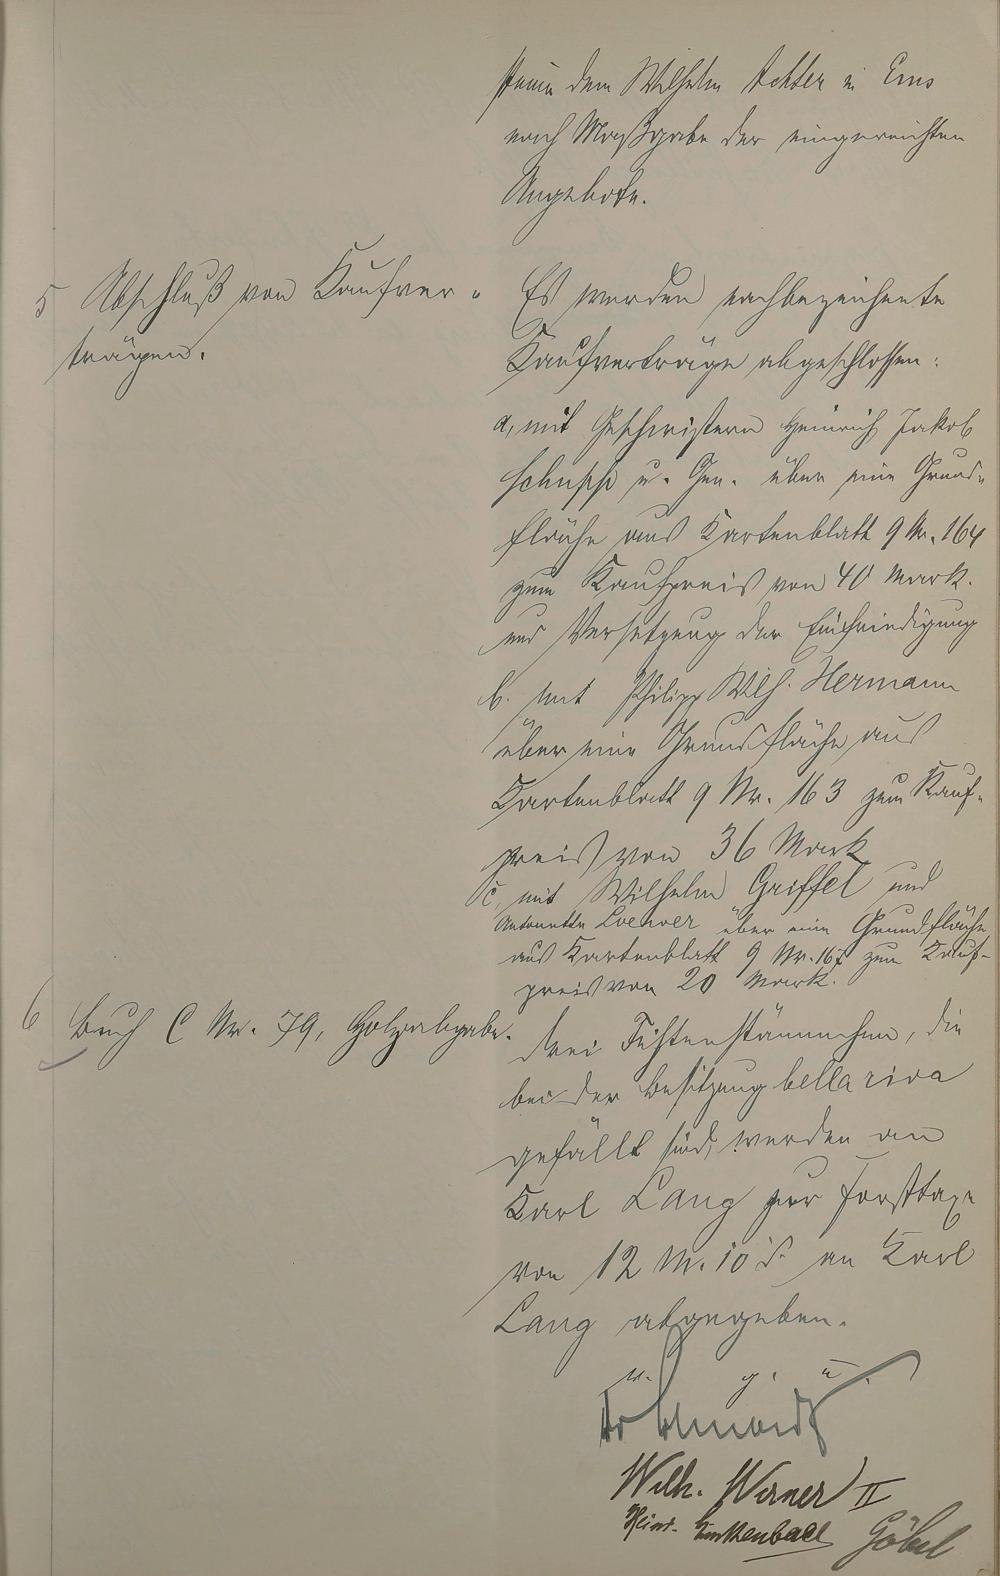 dem Wilhelm Achter in Ems
nach Maßgabe der eingereichten
Angebote.
5 Abschluß von Kaufver-
trägen.
Es werden nachbezeichnete
Kaufverträge abgeschlossen:
a, mit Geschwistern Heinrich Jakob
Schupp u. Gen. über eine Grund-
fläche aus Kartenblatt 9 Nr. 164
zum Kaufpreis von 40 Mark.
und Versetzung der Einfriedigung
b. mit Philipp Wilh. Hermann
über eine Grundfläche aus
Kartenblatt 9 Nr. 163 zum Kauf-
preis von 36 Mark
c, mit Wilhelm Griffel und
Antonette über eine Grundfläche
aus Kartenblatt 9 Nr. 167 zum Kauf-
preis von 20 Mark.
6 Buch C Nr. 79, Holzabgabe.
Drei Fichtenstämmchen, die
bei der Besitzung bella riva
gefällt sind, werden an
Karl Lang zur Forsttaxe
von 12 M. 10 an Karl
Lang abgegeben.
v. g. u.
Wilh. Werner II
Heinr. Linkenbach Göbel